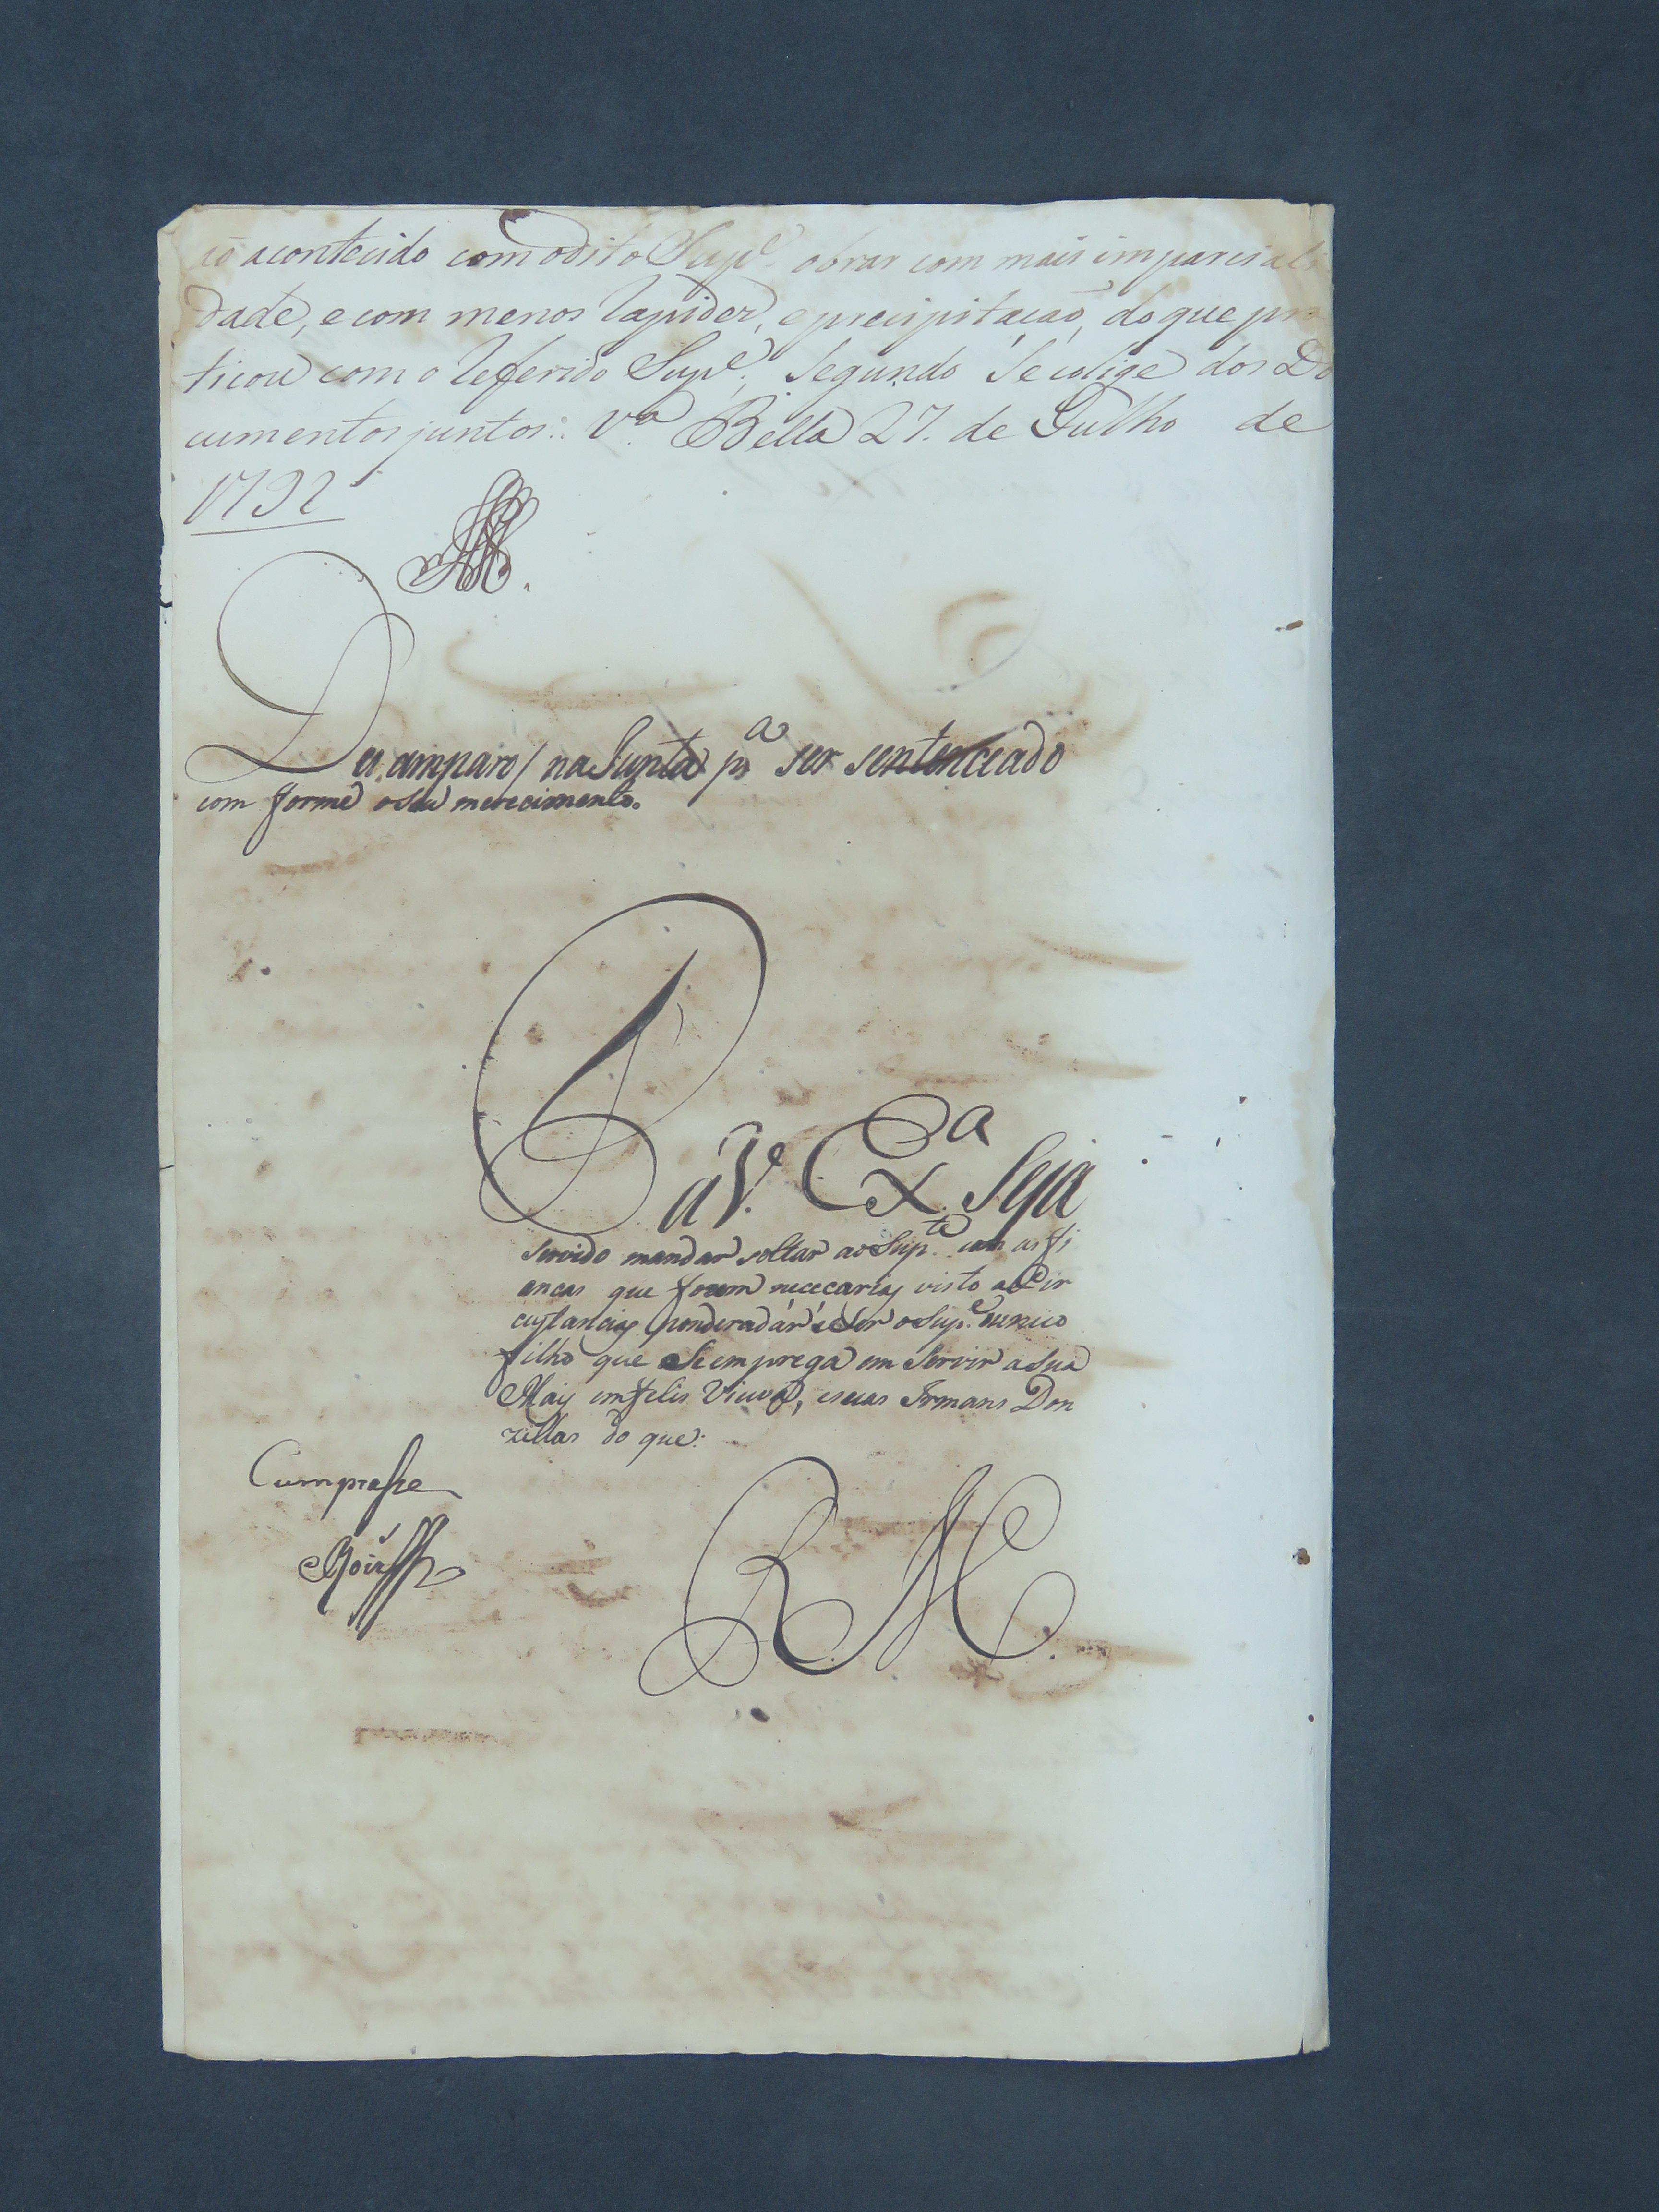 acontecido com o dito Sup.e obrar com mais imparciali
dade, e com menos rapidez, e precipitacaõ, do que pra
ticou com o referido Sup.e, Segundo Se colige dos Do
cumentos juntos: V.a Bella 27. de Julho de
1792
amparo / na Junta p.a ser sentenceado
com forme o seu merecimento.
P a V. Ex.a Seja
Servido mandar soltar ao Sup.te com as fi
ancas que forem nececarias visto as Cir
custancias ponderadas e Ser o Sup.e unico
filho que Se emprega em Servir a Sua
May imfelis Viuva, e suas Irmans Don
zellas do que:
Cumprasse
R M.